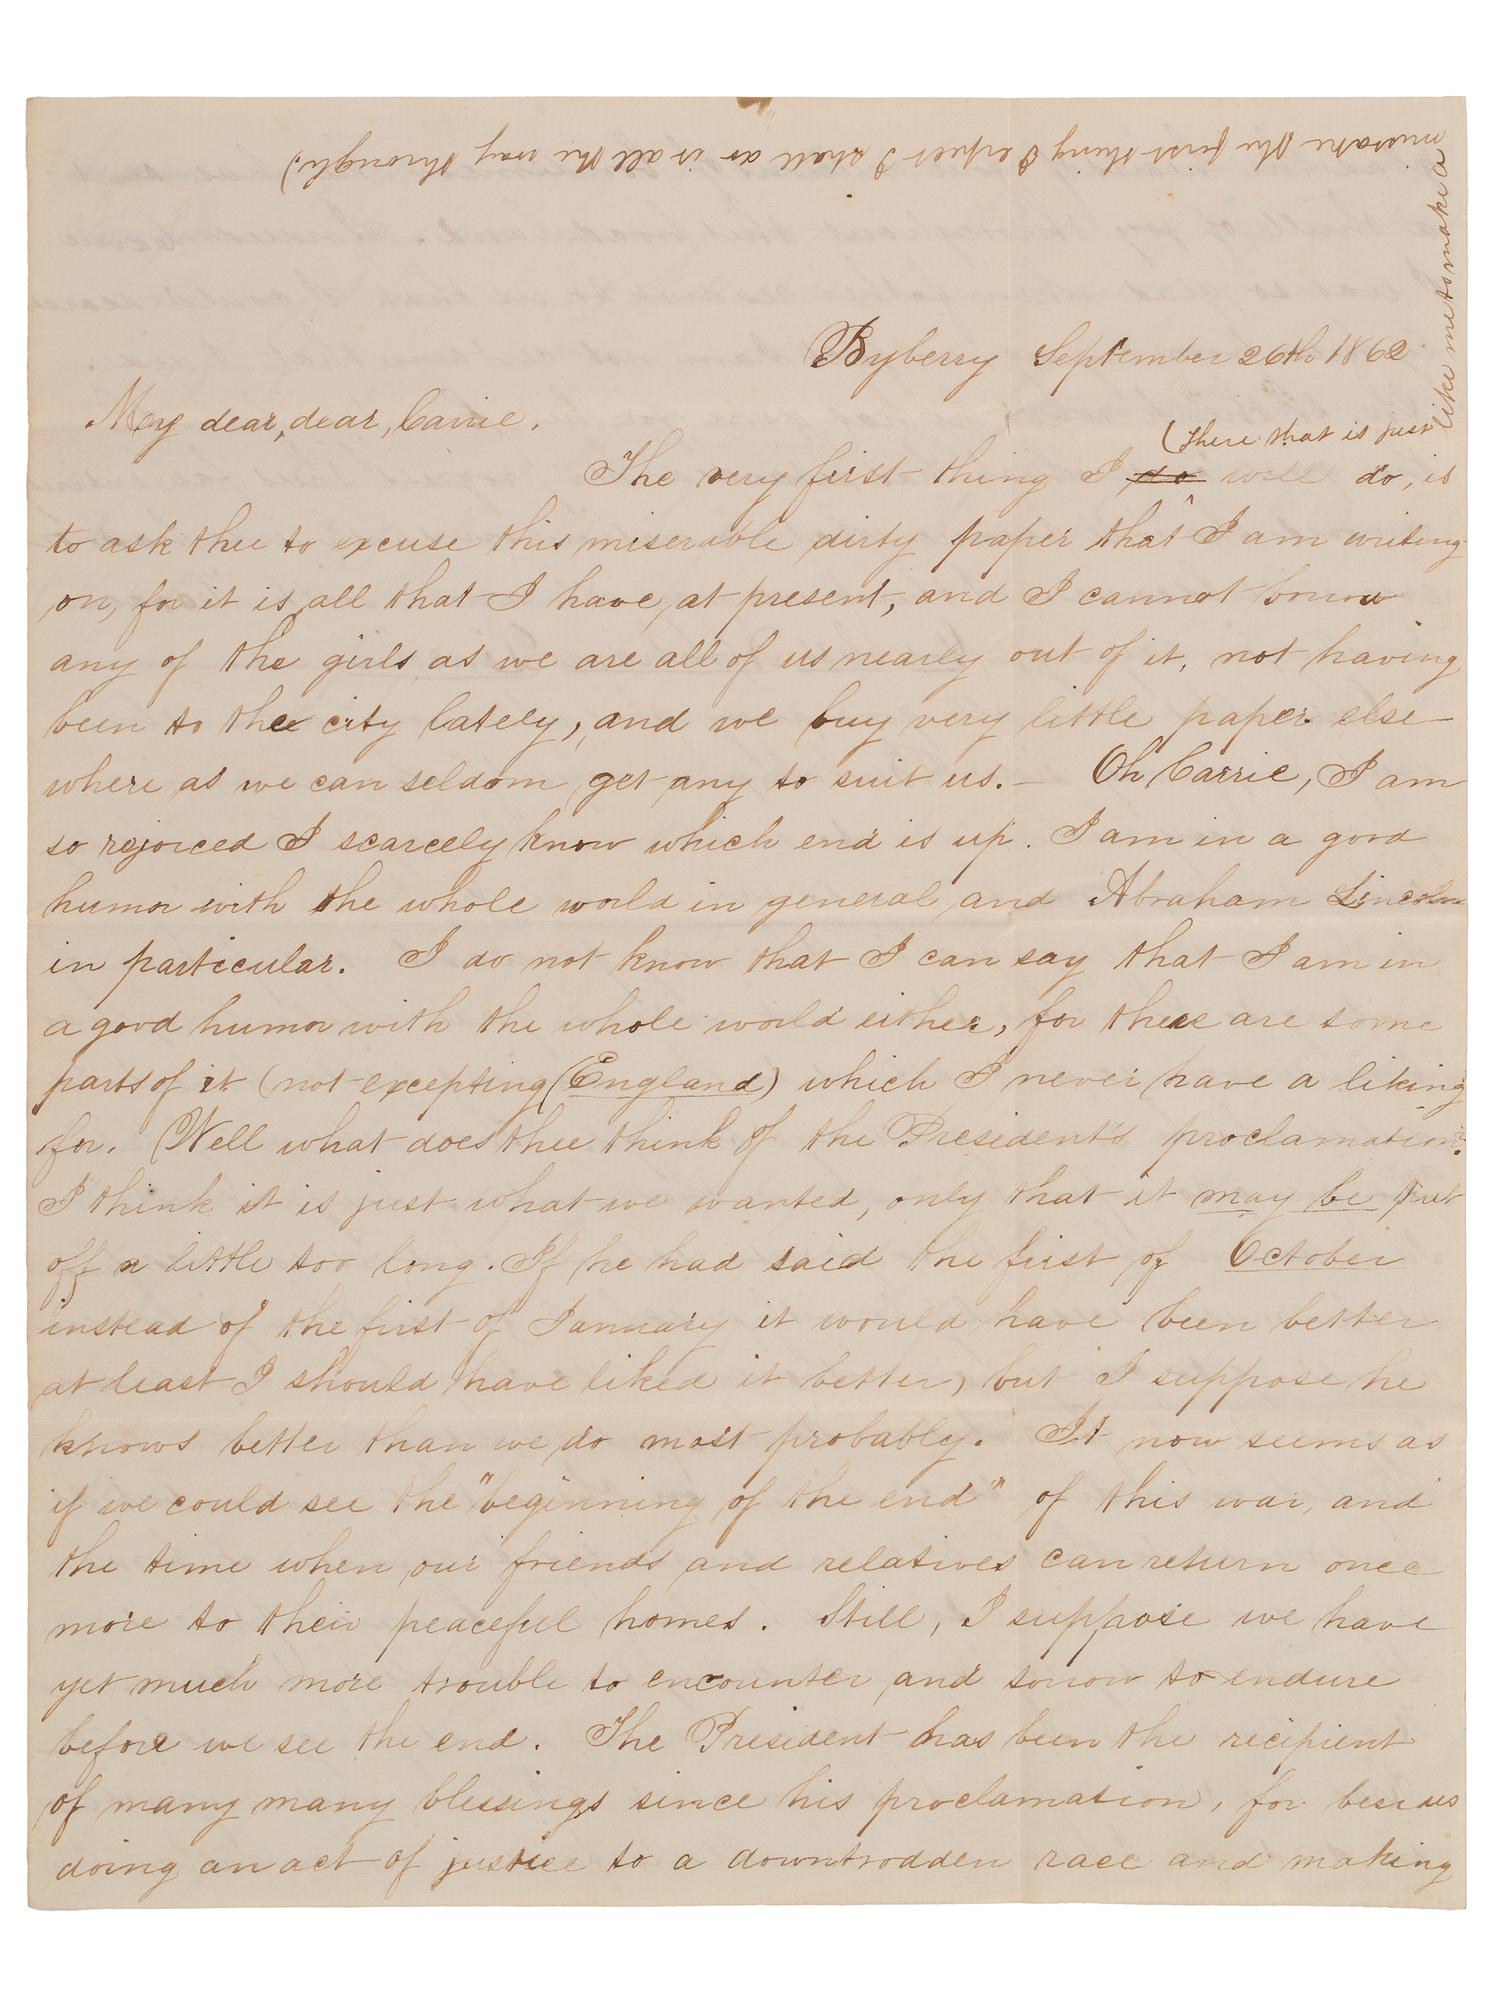 Byberry September 26th 1862
My dear, dear, Carrie.
(There that is just
like me to make a
mistake the first thing I expect I shall as is all the way through)
The very first thing I do will do, is
to ask thee to excuse this miserable dirty paper that I am writing
on, for it is all that I have at present, and I cannot borrow
any of the girls as we are all of us nearly out of it, not having
been to the city lately, and we buy very little paper else-
where as we can seldom get any to suit us. — Oh Carrie, I am
so rejoiced I scarcely know which end is up. I am in a good
humor with the whole world in general and Abraham Lincoln
in particular. I do not know that I can say that I am in
a good humor with the whole world either, for there are some
parts of it (not excepting (England) which I never have a liking
for. Well what does thee think of the President's proclamation?
I think it is just what we wanted, only that it may be put
off a little too long. If he had said the first of October
instead of the first of January it would have been better
at least I should have liked it better, but I suppose he
knows better than we do most probably. It now seems as
if we could see the "beginning of the end" of this war, and
the time when our friends and relatives can return once
more to their peaceful homes. Still, I suppose we have
yet much more trouble to encounter and sorrow to endure
before we see the end. The President has been the recipient
of many many blessings since his proclamation, for besides
doing an act of justice to a downtrodden race and making